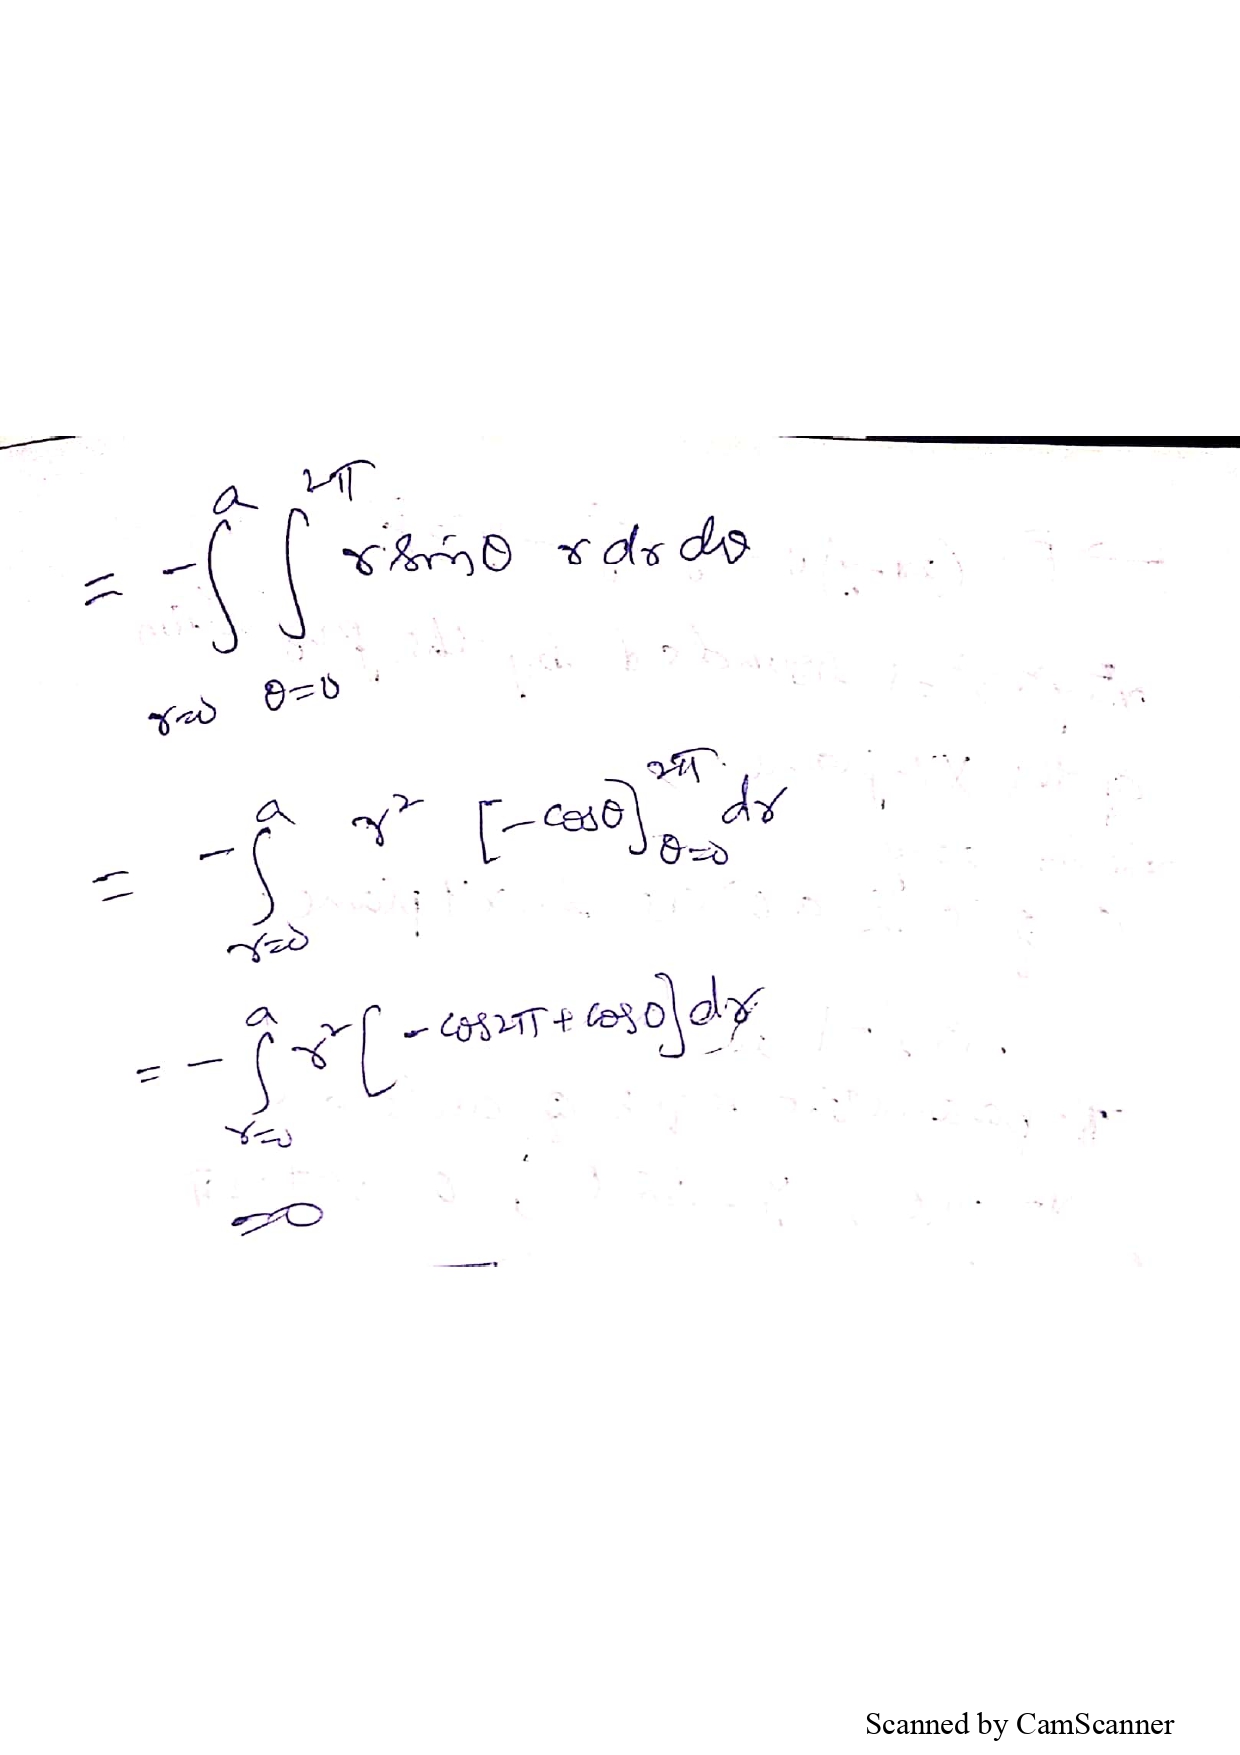 = -∫_{r=0}^{a} ∫_{θ=0}^{2π} r sinθ r dr dθ
= -∫_{r=0}^{a} r² [-cosθ]_{θ=0}^{2π} dr
= -∫_{r=0}^{a} r² [-cos2π + cos0] dr
=0
Scanned by CamScanner